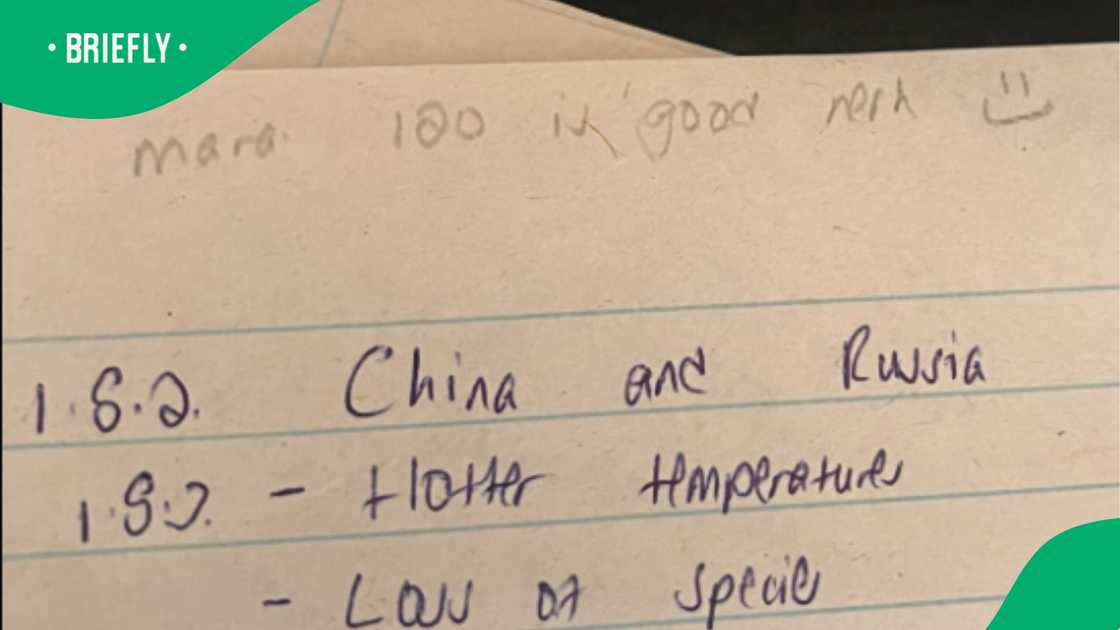 • BRIEFLY •
mara. 100 is good neh
1.8.2. China and Russia
1.8.3. - Hotter temperatures
- Loss of species